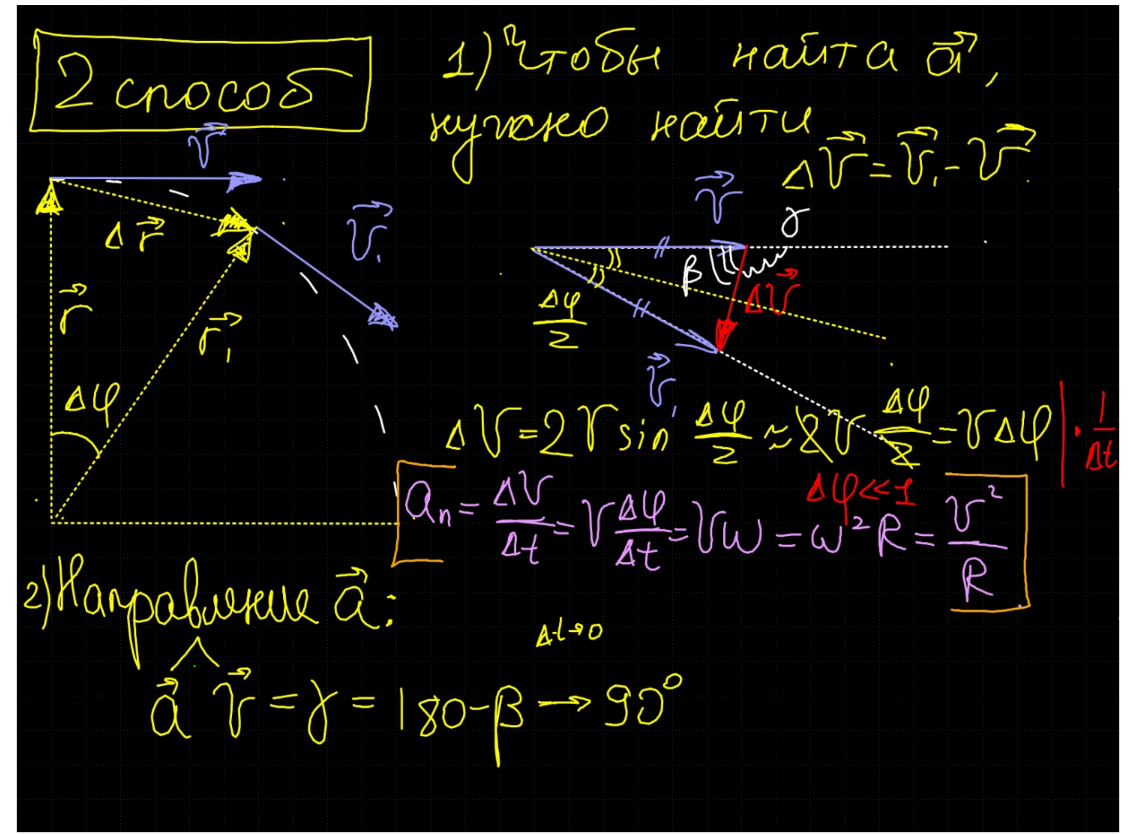 2 способ
1) Чтобы найти a⃗,
нужно найти
Δv⃗ = v⃗₁ - v⃗
v⃗
Δr⃗
v⃗₁
r⃗
r⃗₁
Δφ
v⃗
γ
β
Δv⃗
Δφ/2
v⃗₁
Δv = 2v sin Δφ/2 ≈ 2v Δφ/2 = vΔφ | · 1/Δt
Δφ << 1
aₙ = Δv/Δt = v Δφ/Δt = vω = ω²R = v²/R
2) Направление a⃗:
Δt→0
a⃗ v⃗ = γ = 180-β → 90°